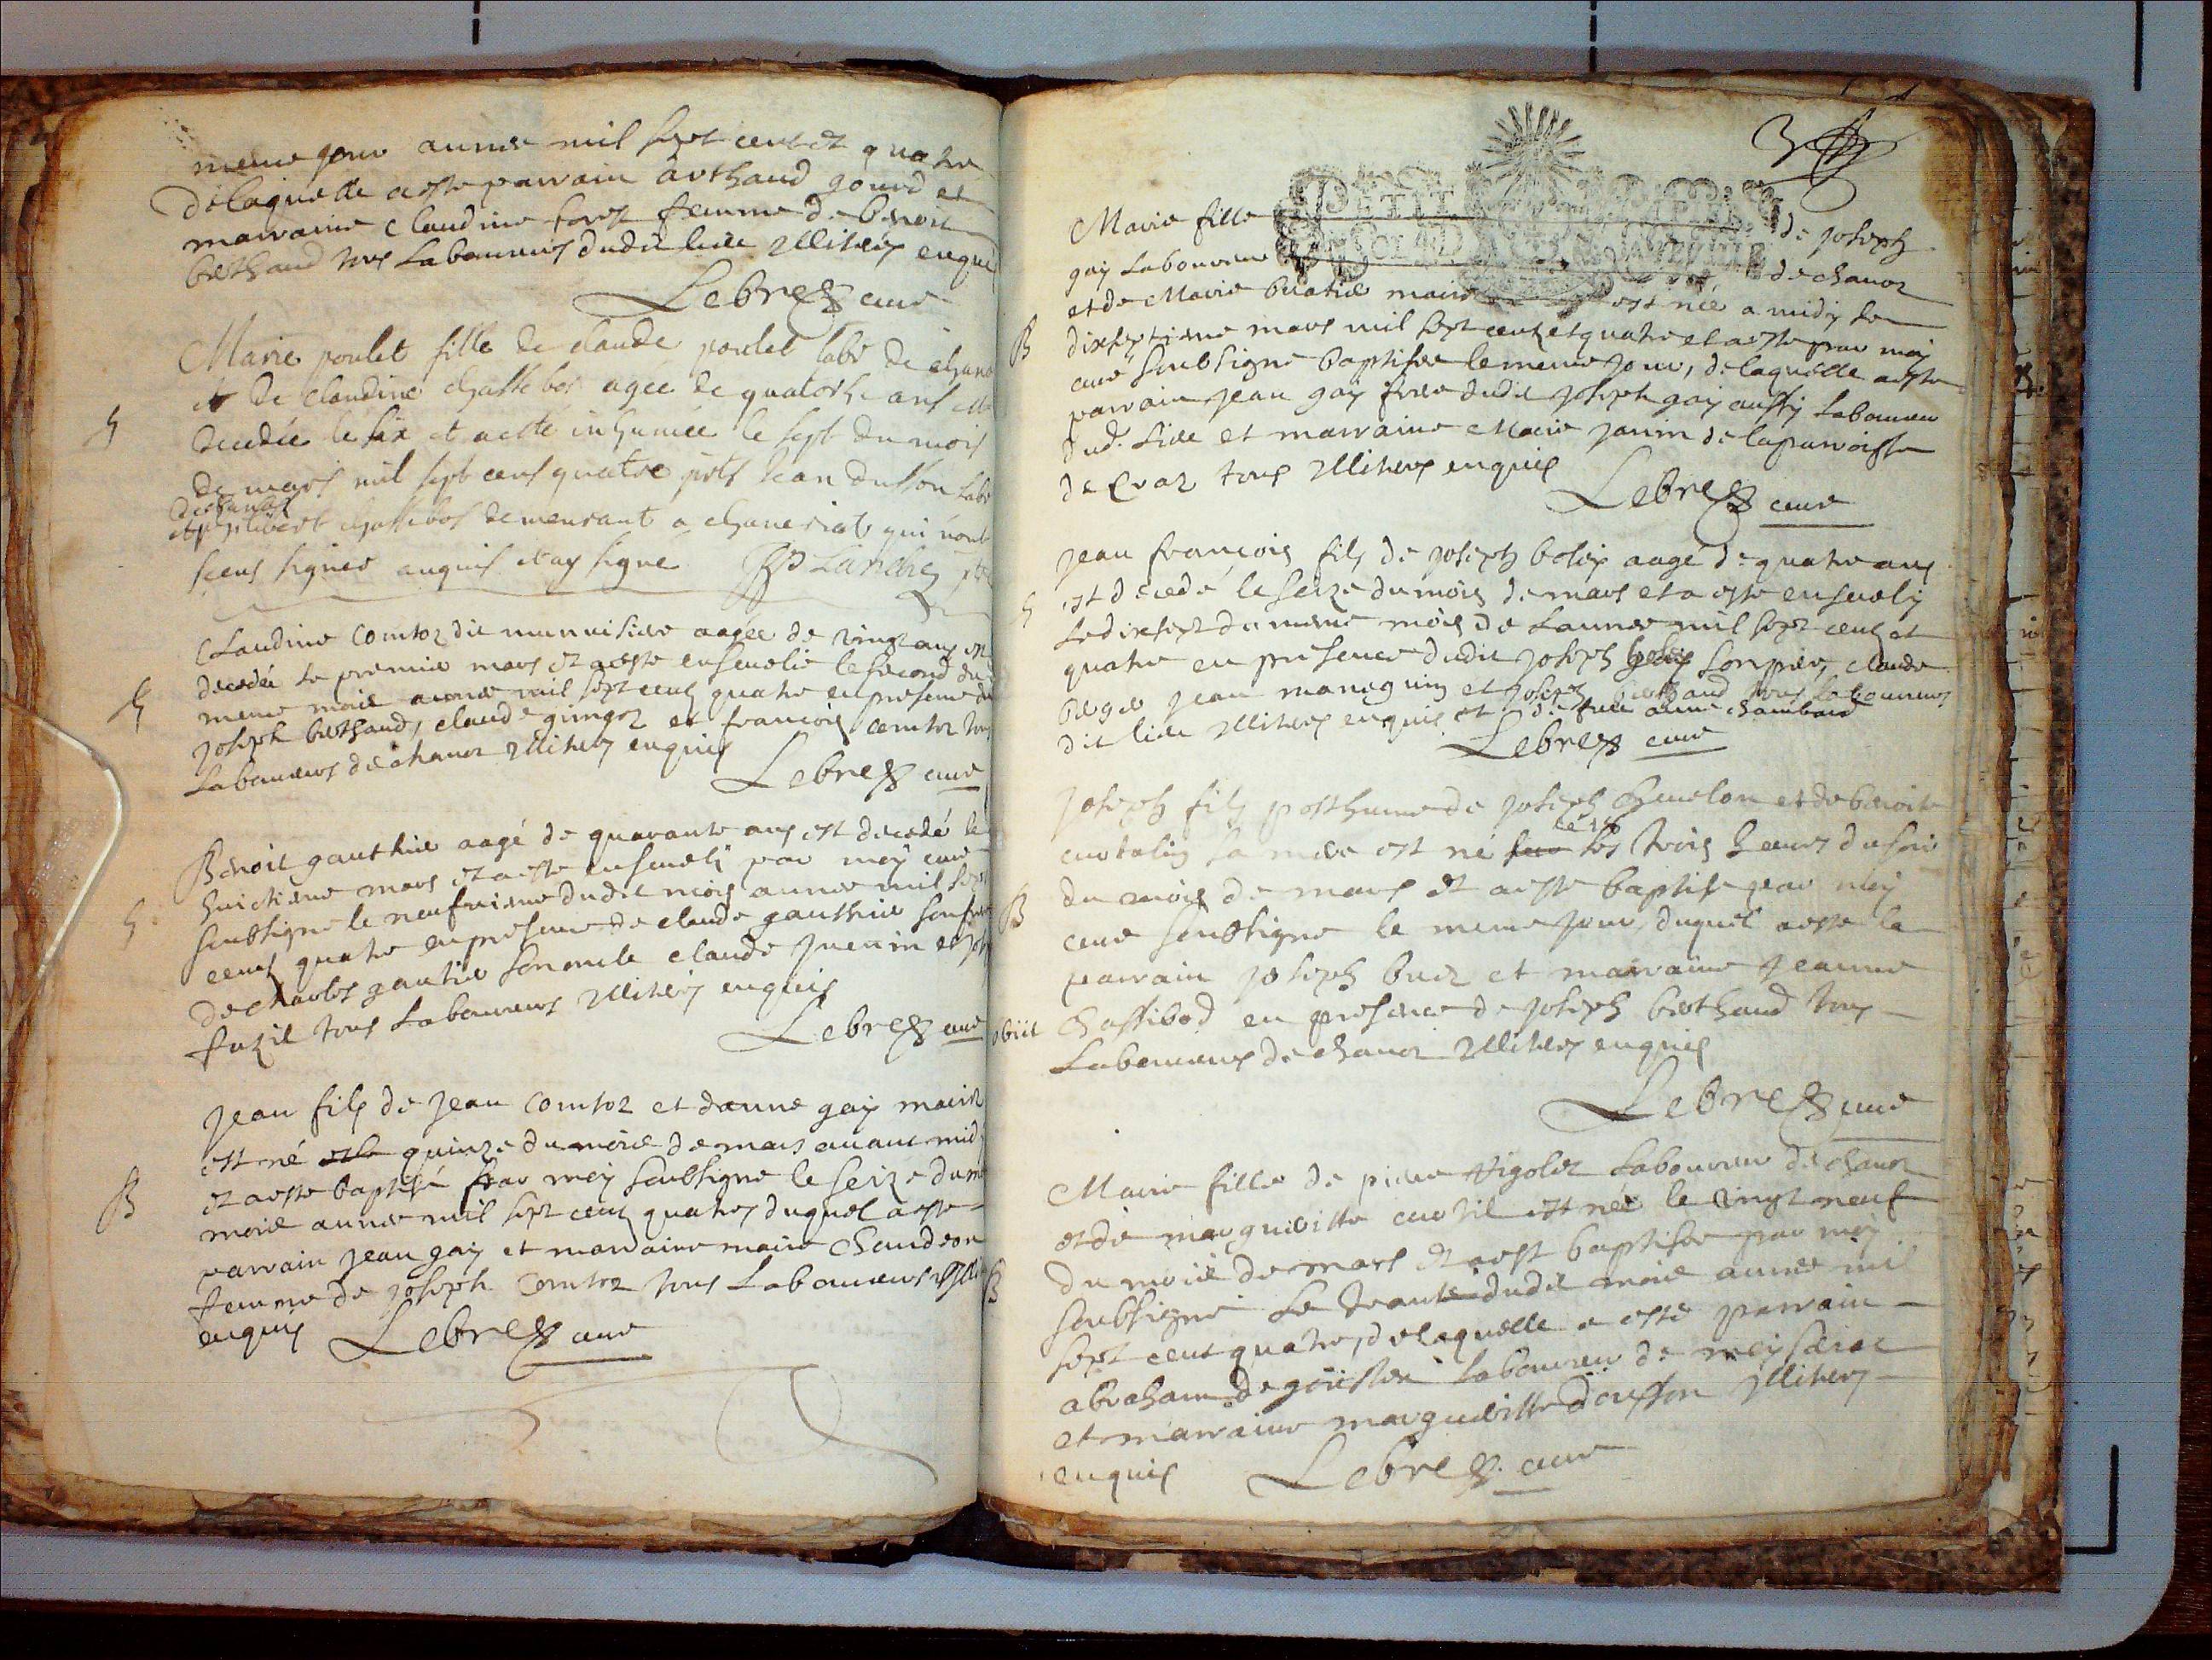 meme jour annee mil sept cent et quatre
de laquelle a este parrain arthaud gourd et
marraine Claudine femme de benoit
berthaud tous Laboureurs dudit lieu illiteres enquis
Lebrez curé
Marie poulet fille de claude poulet labr de chano
et de claudine chassebos agée de quatorse ans est
decedée le six et a esté inhumée le sept du mois
de mars mil sept cens quatre pnts Jean dusson labr
de chanoz
et philibert chassebos demeurant a chaneriat qui n'ont
sceus signer enquis et ay signé
Claudine Comtoz dit aagée de vingt ans est
decedée le premier mars et a este ensevelie le second du
meme mois annee mil sept cens quatre en presence de
joseph berthaud, claude guingoz et francois comtoz tous
Laboureurs de chanoz illiteres enquis
Lebrez curé
Benoit gauthier aagé de quarante ans est decedé le
huictieme mars et a este ensevely par moy curé
soubsigne le neufvieme dudit mois annee mil sept
cens quatre en presence de claude gauthier son frere
de charles gautier son oncle claude juenin et jos
fuzil tous Laboureurs illiteres enquis
Lebrez curé
Jean fils de Jean Comtoz et danne gay mariez
est né quinze du mois de mars avant midy
et a este baptisé par moy soubsigne le seize du me
mois annee mil sept cens quatre, duquel a este
parrain jean gay et marraine marie Chaudeon
femme de joseph Comtoz tous Laboureurs illit
enquis Lebrez curé
PETIT PAPIER
Marie fille de joseph
gay Laboureur de chanoz
et de Marie mariez est née a midy le
B dixseptieme mars mil sept cens et quatre et a este par moy
curé soubsigne baptisée le meme jour, de laquelle a este
parrain jean gay frere dudit joseph gay aussy Laboureur
dud. lieu et marraine Marie janin de la parroisse
de Craz tous illiteres enquis
Lebrez curé
Jean francois fils de joseph boley aagé de quatre ans
est decedé le seize du mois de mars et a este ensevely
le dixsept du meme mois de Lannee mil sept cens et
quatre en presence dudit joseph boley son pere, claude
berger jean maneguin et joseph berthaud tous Laboureurs
dit lieu illiteres enquis et de anne chambard
Lebrez curé
Joseph fils posthume de joseph Chevelon et de benoite
le 18
curtalin sa mere est né sur les trois heures du soir
B du mois de mars et a este baptise par moy
curé soubsigne le meme jour, duquel a este le
parrain joseph buez et marraine jeanne
obiit Chassibod en presence de joseph berthaud tous
Laboureurs de chanoz illiteres enquis
Lebrez curé
Marie fille de pierre Vigolet Laboureur de chanoz
et de marguerite curtil est née le vingt neuf
du mois de mars et a est baptisée par moy
B soubsigné Le trante dudit mois annee mil
sept cent quatre, de laquelle a esté parrain
abraham Laboureur de meyseriat
et marraine marguerite dousson illiteres
enquis Lebrez. curé